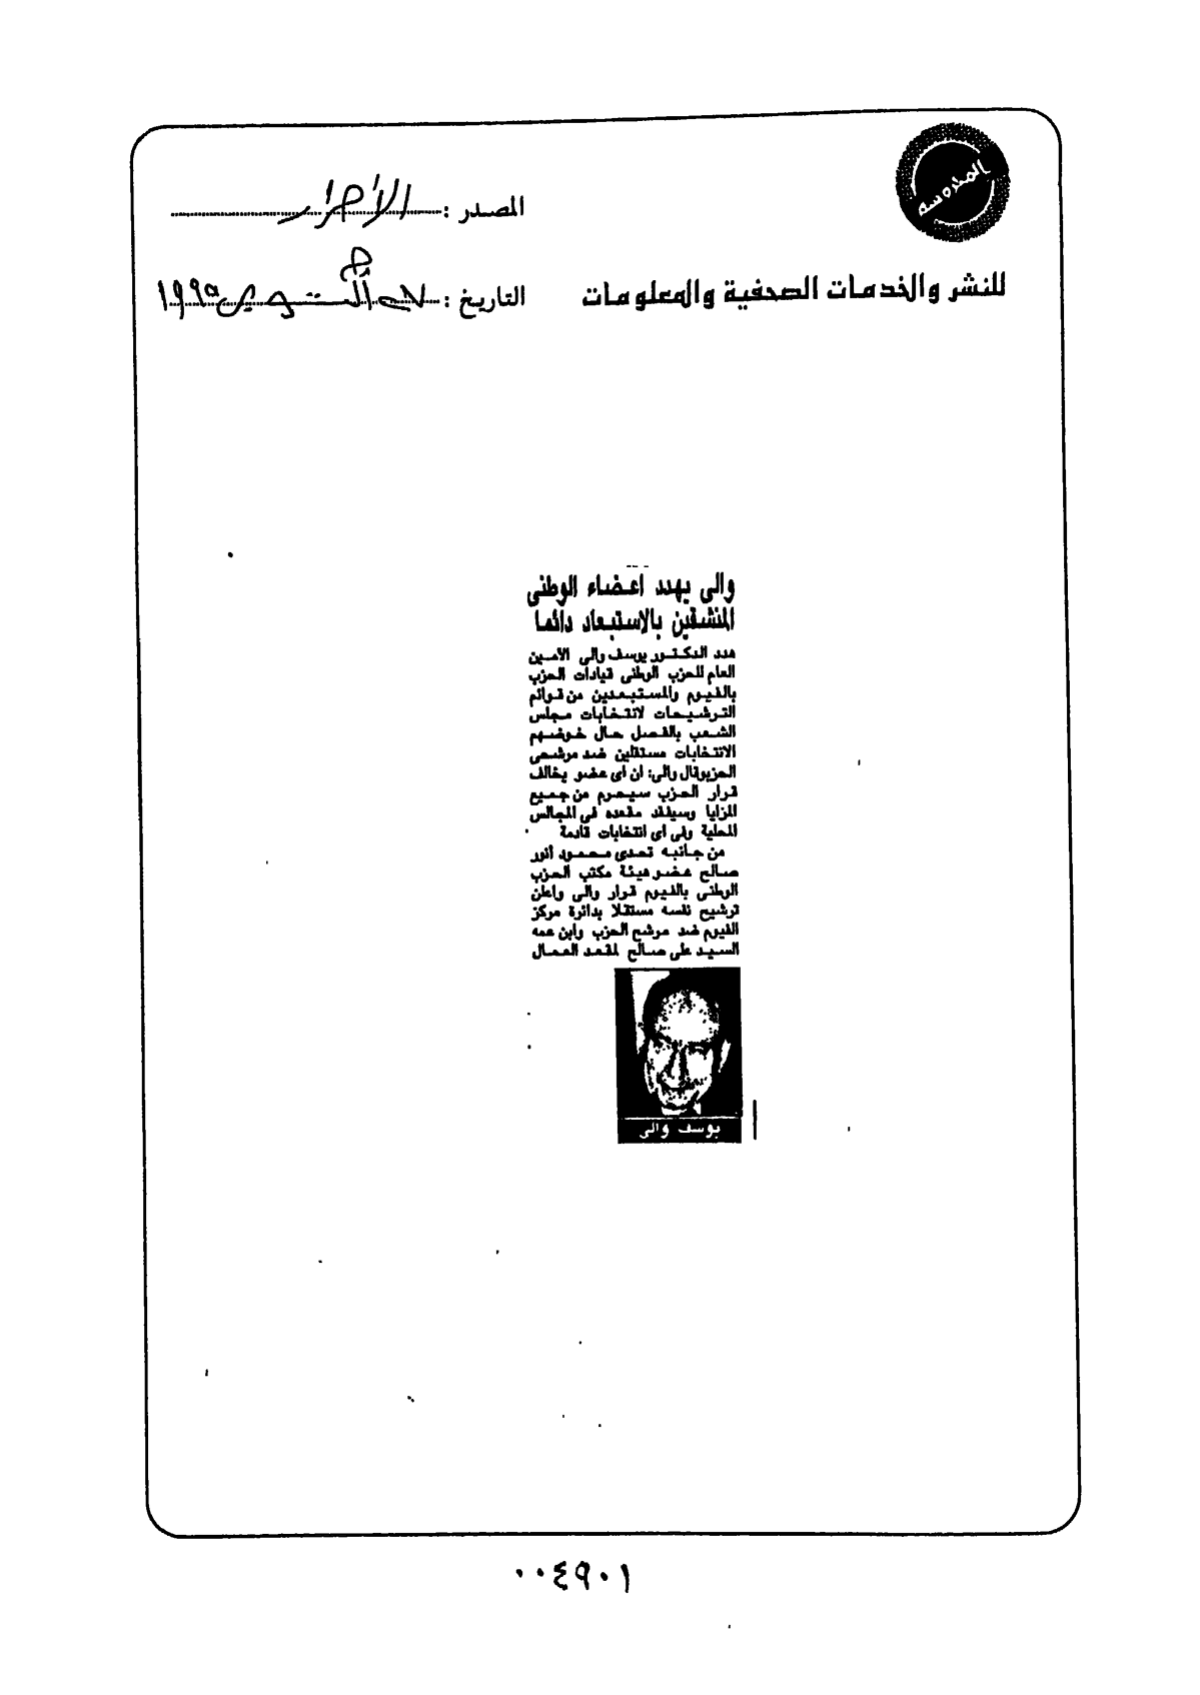 المحروسة
المصدر : الأحرار
للنشر والخدمات الصحفية والمعلومات
التاريخ : أكتوبر ١٩٩٥
والى يهدد اعضاء الوطنى
المنشقين بالإستبعاد دائما
هدد الدكتور يوسف والى الأمين
العام للحزب الوطنى قيادات الحزب
بالفيوم والمستبعدين من قوائم
الترشيحات لانتخابات مجلس
الشعب بالفصل حال خوضهم
الانتخابات مستقلين ضد مرشحى
الحزبوقال والى: ان اى عضو يخالف
قرار الحزب سيحرم من جميع
المزايا وسيفقد مقعده فى المجالس
المحلية وفى اى انتخابات قادمة
من جانبه تحدى محمود أنور
صالح عضو هيئة مكتب الحزب
الوطنى بالفيوم قرار والى واعلن
ترشيح نفسه مستقلا بدائرة مركز
الفيوم ضد مرشح الحزب وابن عمه
السيد على صالح لمقعد العمال
يوسف والى
٠٠٤٩٠١